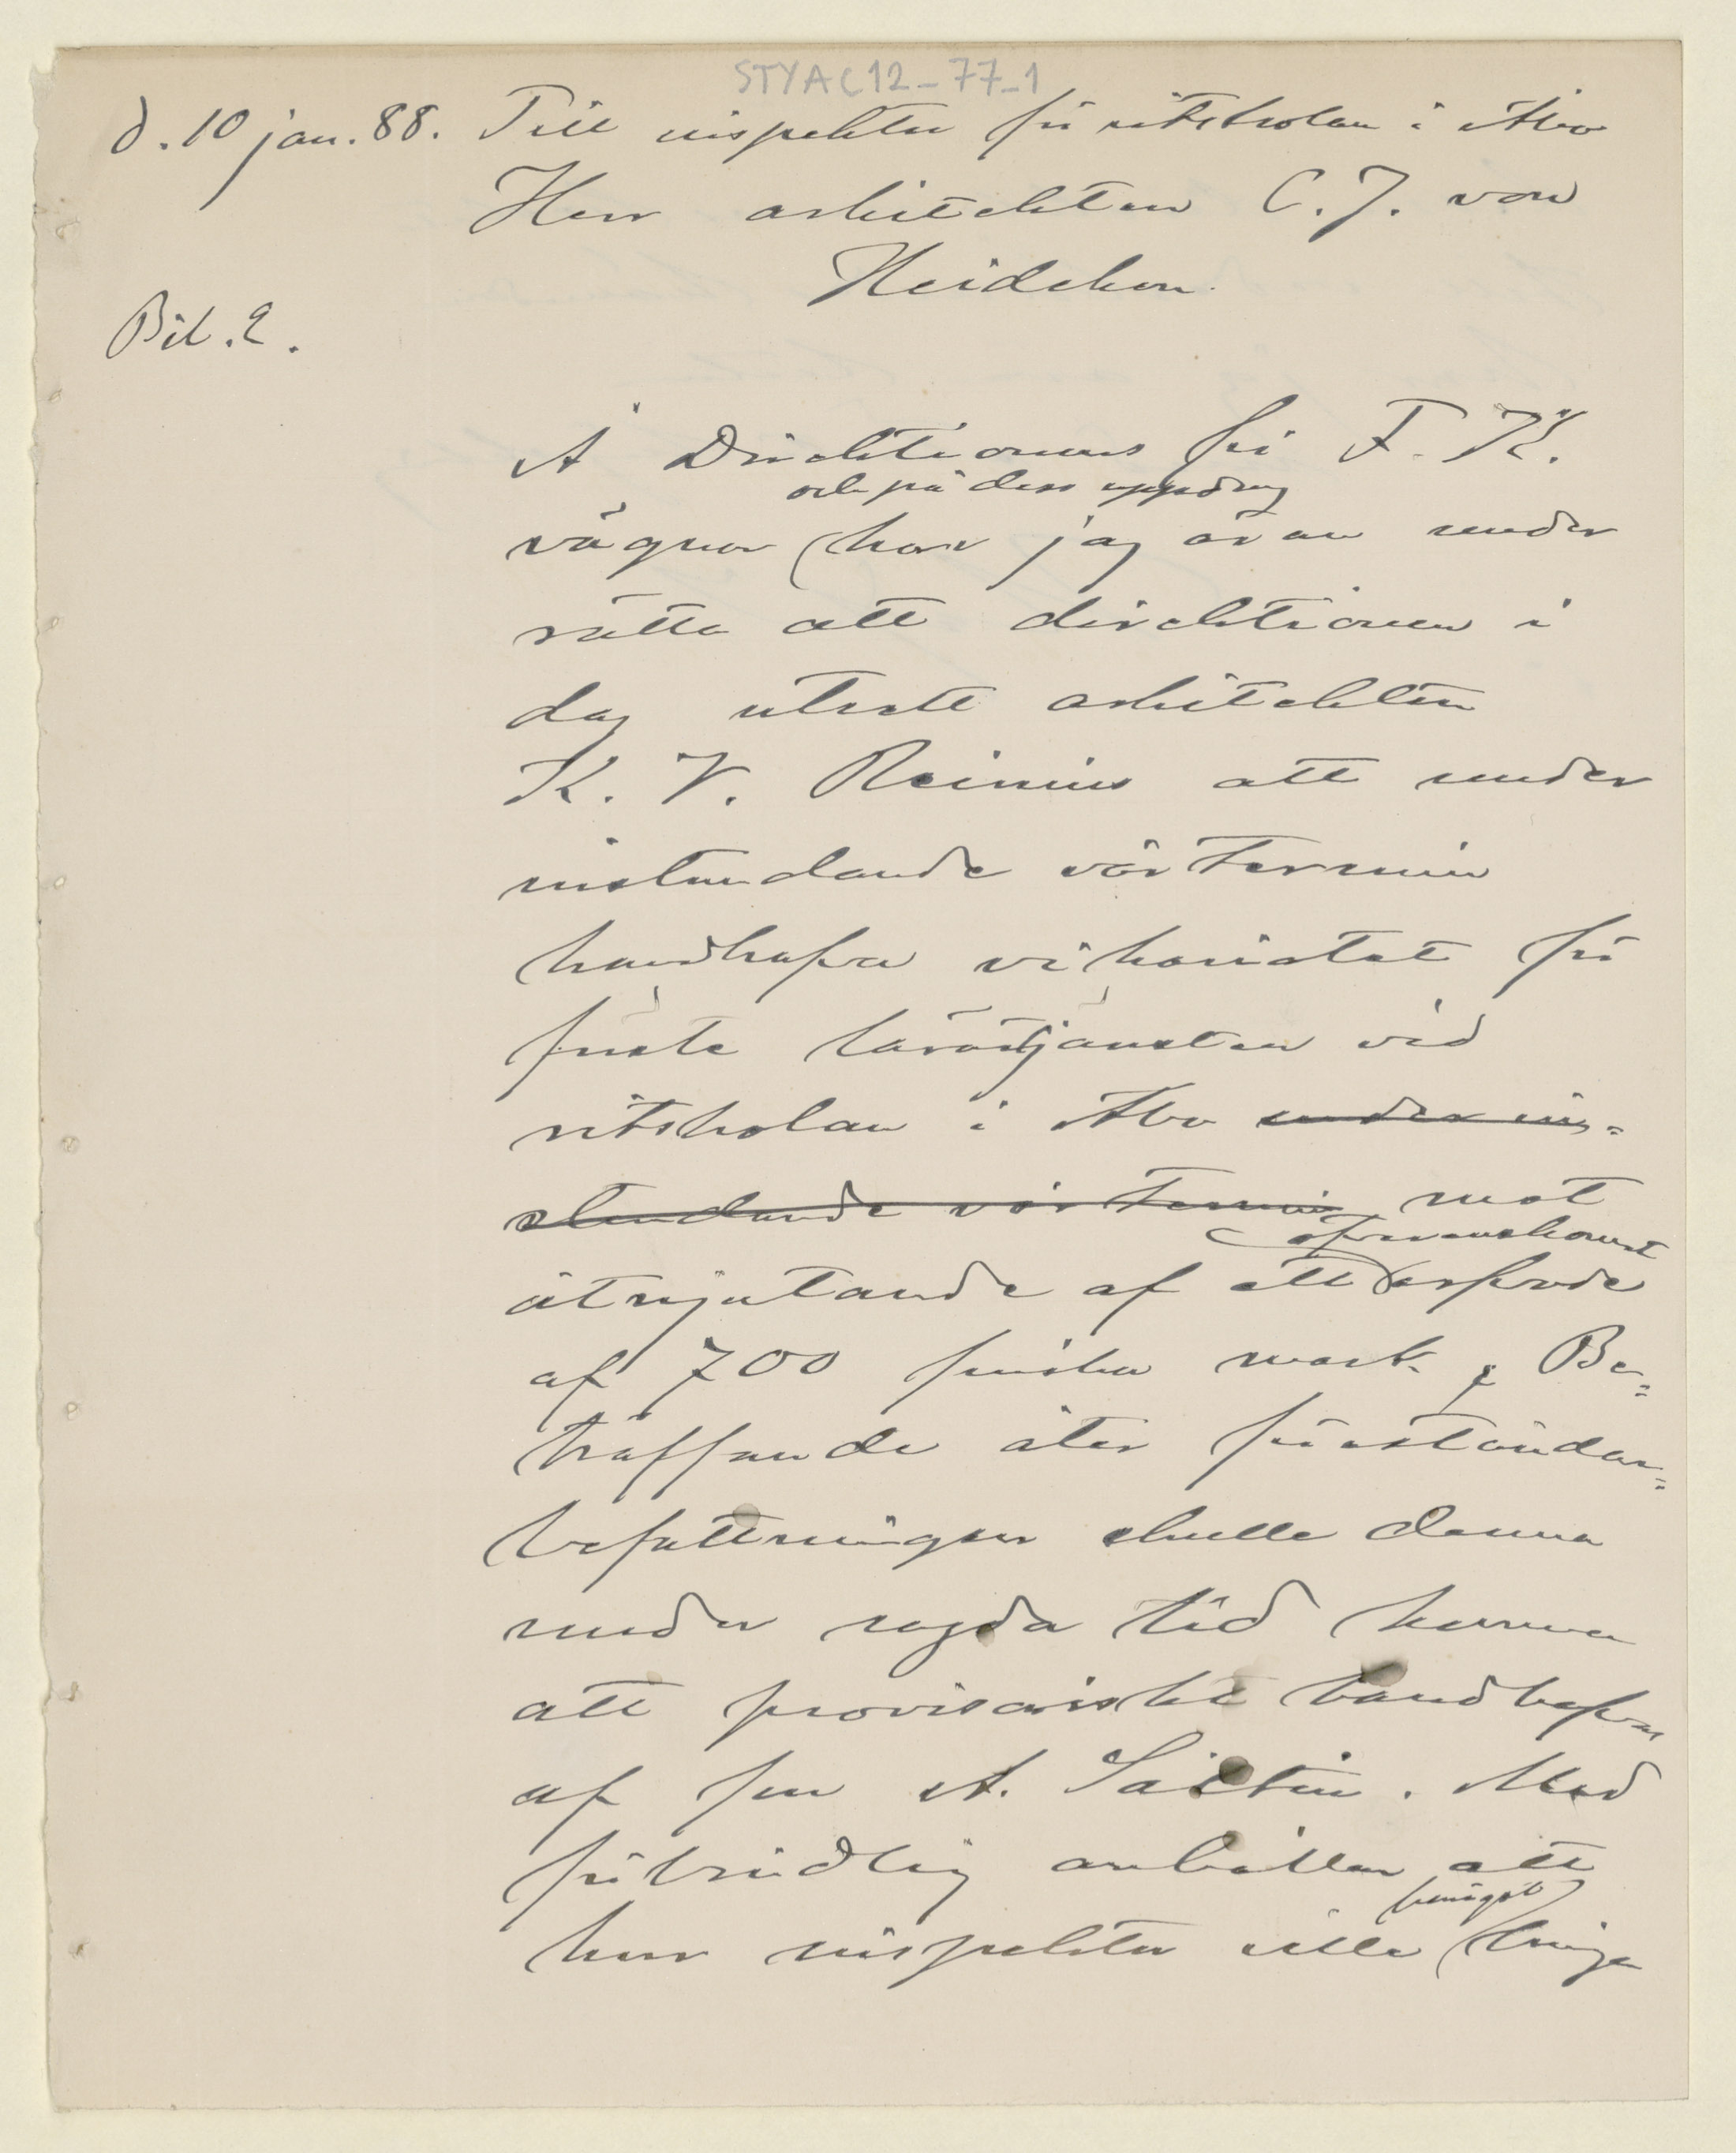 STYAC12-77-1
d. 10 jan. 88. Till inspektor för ritskolan i Åbo
Herr arkitekten C. J. von
Heideken.
Bil. 2.
Å Direktionens för F. K.
och på dess uppdrag
vägnar har jag äran under
rätta att direktionen i
dag utsett arkitekten
K. V. Reinius att under
instundande vårtermin
handhafva vikariatet för
första lärartjänsten vid
ritskolan i Åbo under in-
stundande vårtermin mot
öfverenskommet
åtnjutande af ett arfvode
af 700 finska mark. Be-
träffande åter föreståndar-
befattningen skulle denna
under sagda tid komma
att provisoriskt handhafvas
af frn A. Sältin. Med
förbindlig anhållan att
benäget
herr inspektor ville bringa